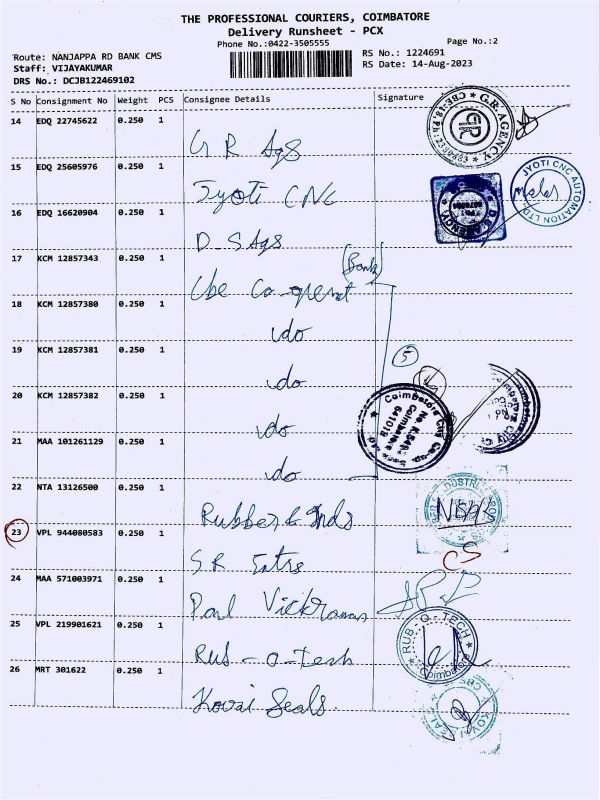 THE PROFESSIONAL COURIERS, COIMBATORE
Delivery Runsheet - PCX
Phone No.:0422-3505555
Page No.:2
Route: NANJAPPA RD BANK CMS
RS No.: 1224691
Staff: VIJAYAKUMAR
RS Date: 14-Aug-2023
DRS No.: DCJB122469102
S No Consignment No Weight PCS Consignee Details Signature
14 EDQ 22745622 0.250 1 G R Ags
G.R. AGENCY
15 EDQ 25605976 0.250 1 Jyoti CNC
JYOTI CNC AUTOMATION LTD.
16 EDQ 16620904 0.250 1 D. S Ags
17 KCM 12857343 0.250 1 Cbe Co-operat (Bank)
18 KCM 12857380 0.250 1 do
19 KCM 12857381 0.250 1 do
5
20 KCM 12857382 0.250 1 do
Coimbatore City Co-op
No. K.549
Coimbatore
641018
21 MAA 101261129 0.250 1 do
22 NTA 13126500 0.250 1 Rubber & Inds
23 VPL 944080583 0.250 1 S R Entrs
CS
24 MAA 571003971 0.250 1 Paul Vickraman
25 VPL 219901621 0.250 1 Rub-o-tech
RUB-O-TECH
Coimbatore
26 MRT 301622 0.250 1 Kovai Seals
KOVAI SEALS